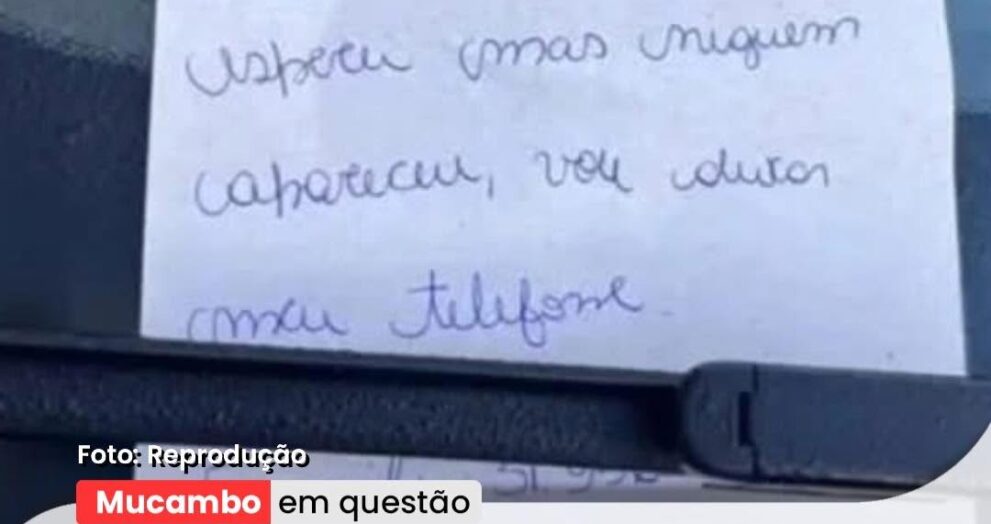 esperei mas niguem
apareceu, vou deixar
meu telefone.
Foto: Reprodução
Mucambo em questão